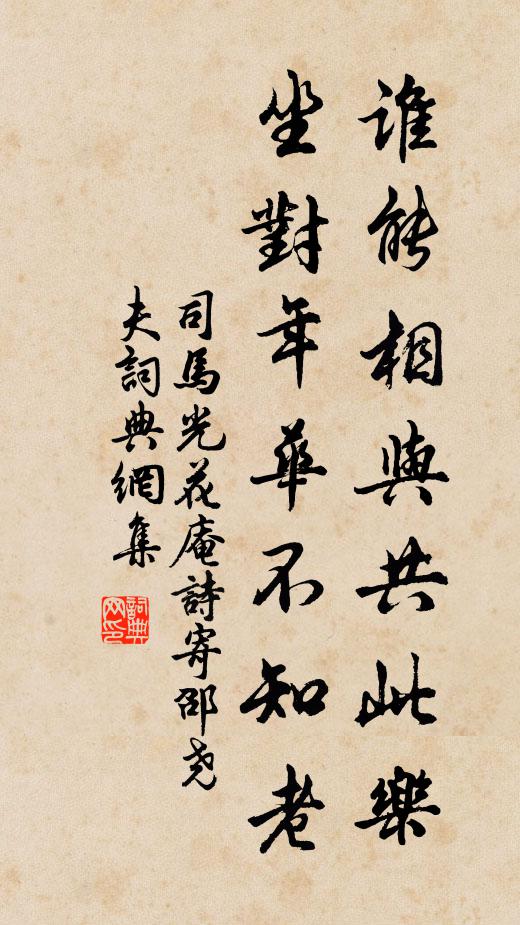 誰能相與共此樂
坐對年華不知老
司馬光花庵詩寄邵堯
夫詞典網集
詞典网印